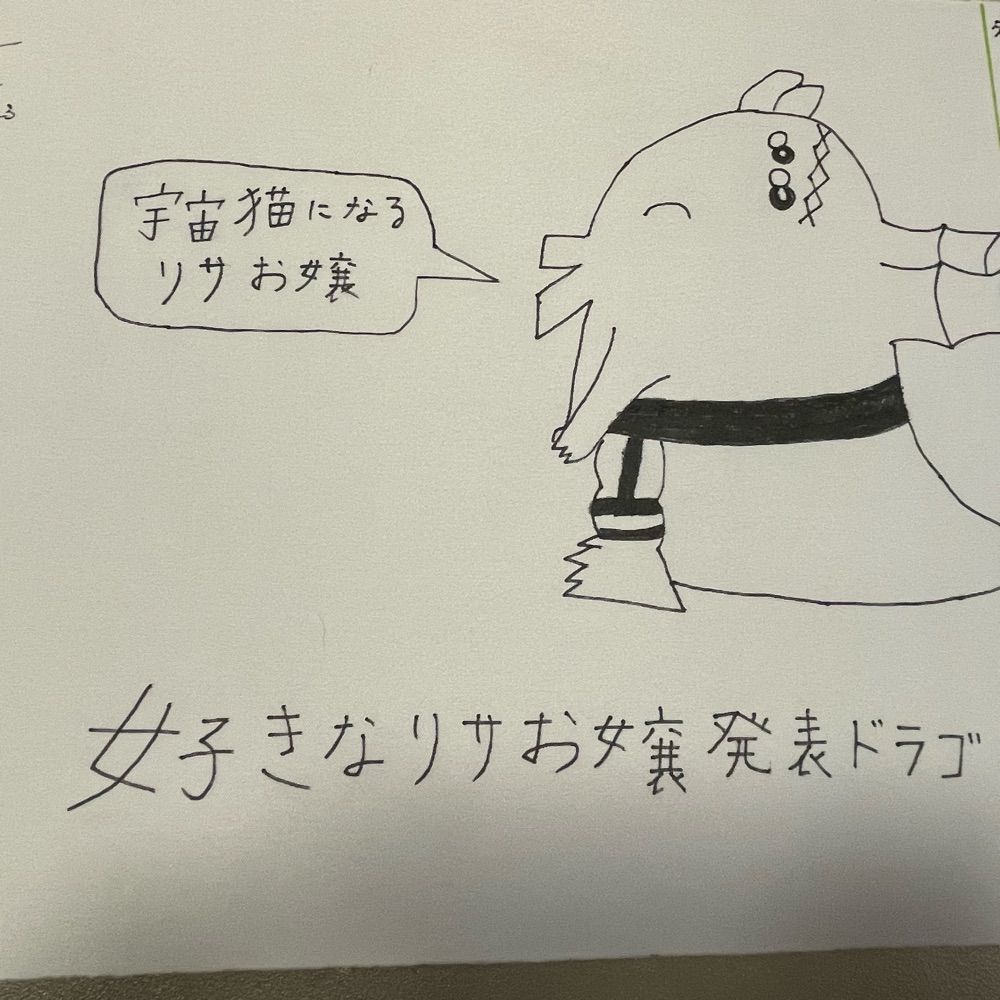 宇宙猫になる
リサお嬢
好きなリサお嬢発表ドラゴ